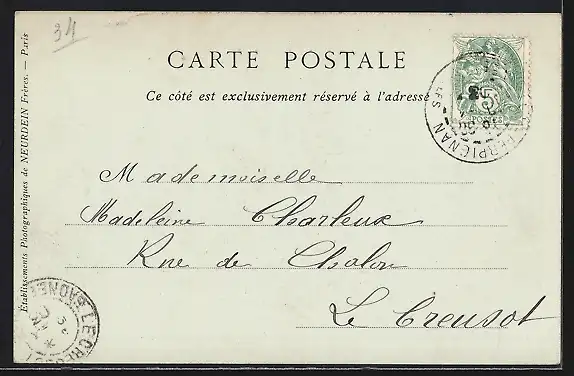 34
CARTE POSTALE
Ce côté est exclusivement réservé à l'adresse
5
POSTES
PERPIGNAN
Mademoiselle
Madeleine Charleux
Rue de Chalon
Le Creusot
Établissements Photographiques de NEURDEIN Frères. — Paris
LE CREUSOT